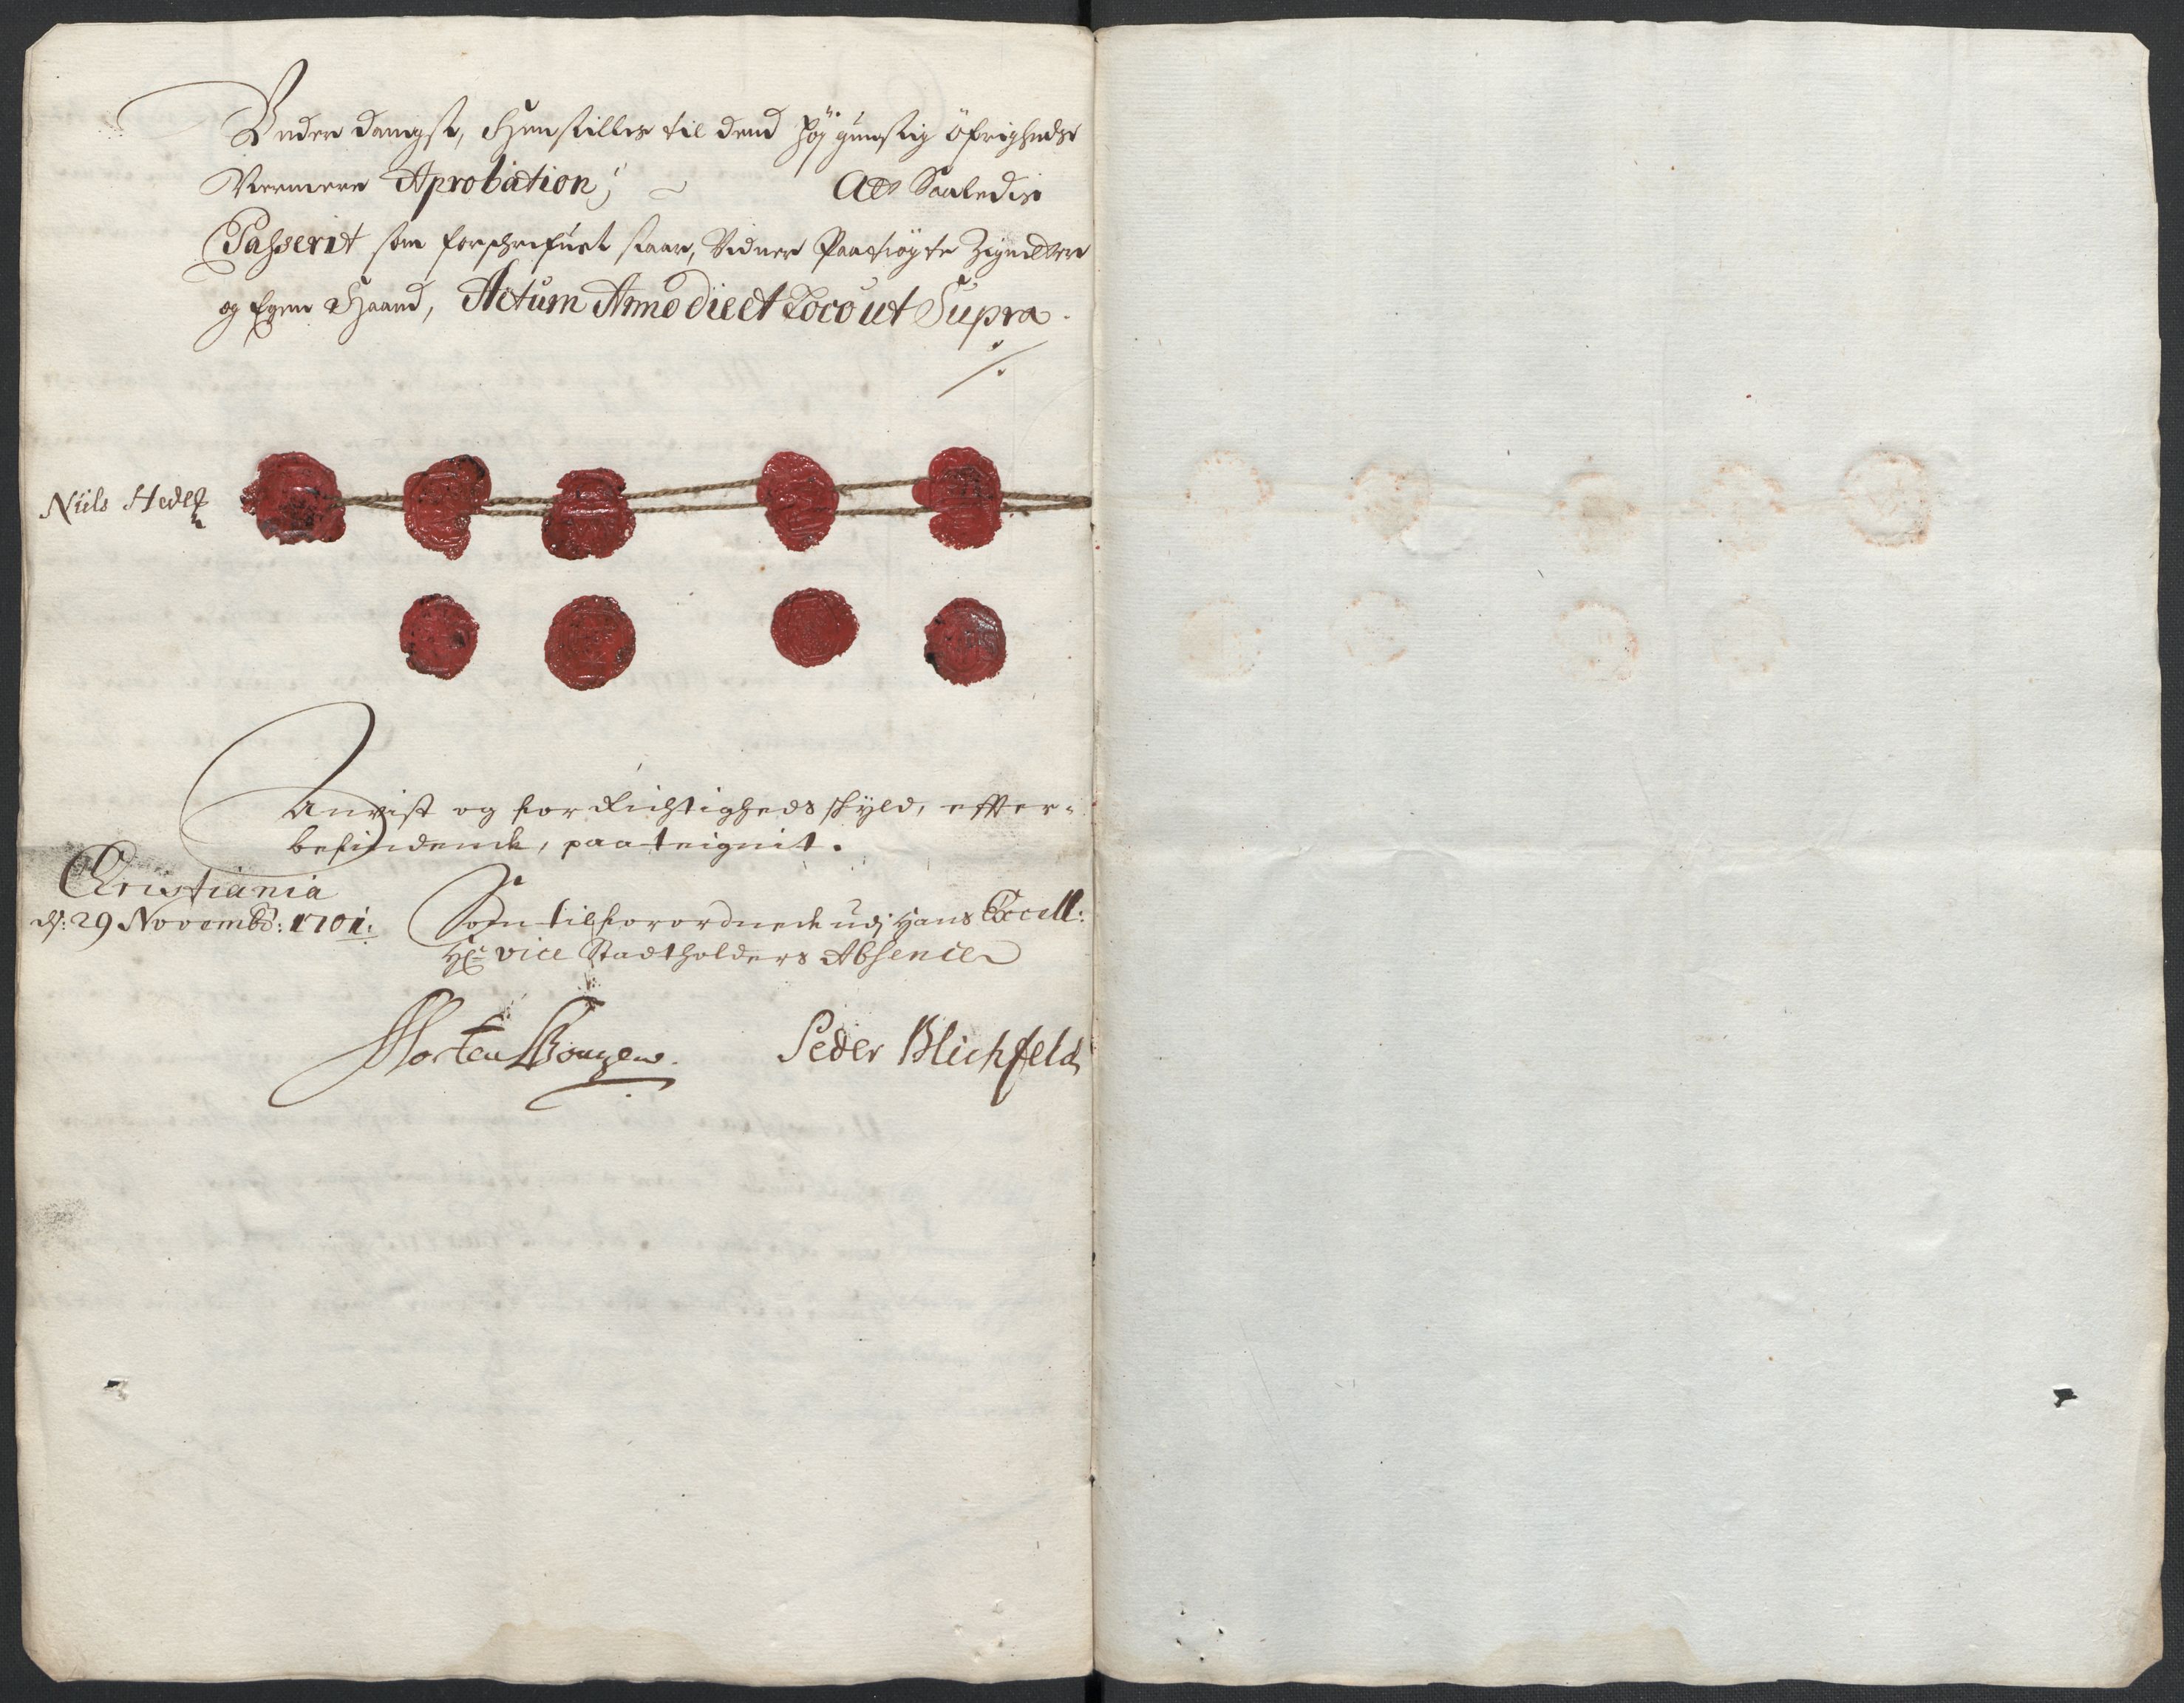 Under danigst, Henstilles til dend høj gunstig Öfrigheds
Nermere Aprobation;                Att Saaledis
Passerit som forschrefuet staar, Vidner Paatrögte Zigneter
og Egen Haand, Actum Anno die et Loco ut Supra.
Niels Heded
Anvist og for Richtigheds skyld, effter-
befindende, paateignit.
Christiania
d: 29 Novembr: 1701:
Som tilforordnede udj Hans Excell:
Hr Vice Stadtholders Absence
Morten Peder Blichfeld